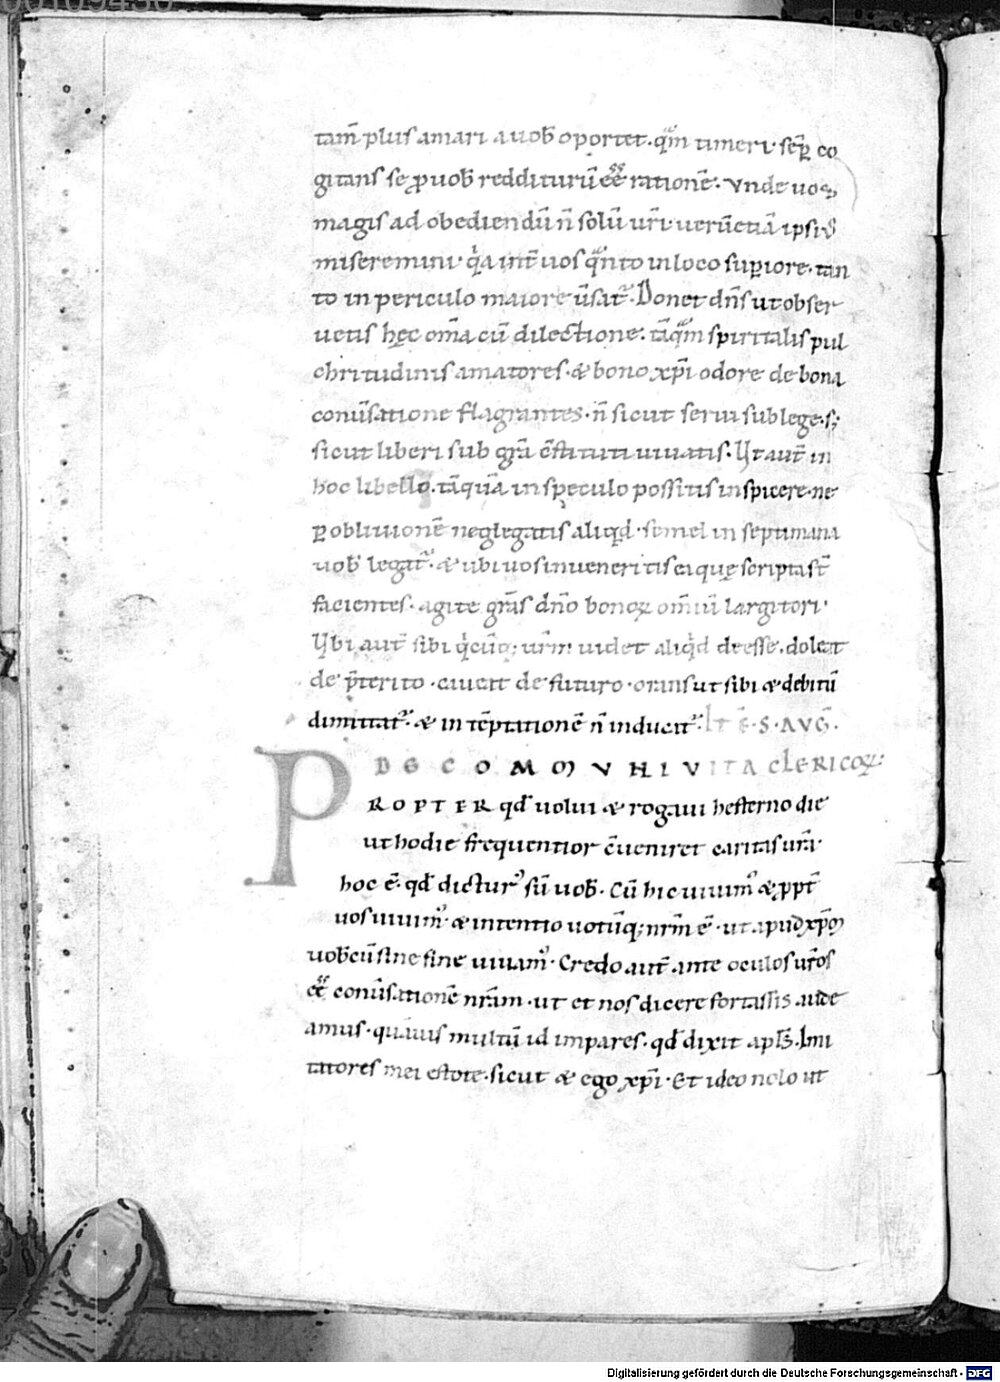 00109436
tam̄ plus amari a uob̄ oportet · qͣm timeri · sēp co
gitans se ꝓ uob̄ redditurū ee͞ rationē · Vnde uos
magis ad obediendū n̄ solū ur̄i · uerūetiā ipsiꝰ
miseremini · qͥa int̄ uos qͣnto in loco supiore · tan
to in periculo maiore ūsat᷑ · Donet dn̄s ut obser
uetis hęc om̄a cū dilectione · tāqͣm spiritalis pul
chritudinis amatores · & bono xp̄i odore de bona
conūsatione flagrantes · n̄ sicut serui sub lege · s;
sicut liberi sub gr̄a c̄stituti uiuatis · Ut aut̄ in
hoc libello · tāquā in speculo possitis inspicere · ne
ꝑ obliuionē neglegatis aliqͥd · semel in septimana
uob̄ legat᷑ · & ubi uos inueneritis ea quę scripta st̄
facientes · agite gr̄as dn̄o bonoꝝ om̄iū largitori ·
Ubi aut̄ sibi qͥcūq; ur̄m uidet aliqͥd deesse · doleat
de p̄terito · caueat de futuro · orans ut sibi & debitū
dimittat᷑ · & in tēptationē n̄ inducat᷑ · It̄ · S · AVG̅ ·
DE COMMVNI VITA CLERICOꝝ:
PROPTER qd̄ uolui & rogaui hesterno die
ut hodie frequentior c̄ueniret caritas ur̄a ·
hoc ē · qd̄ dicturꝰ sū uob̄ · Cū hic uiuimꝰ & ꝓpt̄
uos uiuimꝰ · & intentio uotūq; nr̄m ē · ut apud xp̄m
uob̄cū sine fine uiuamꝰ · Credo aut̄ ante oculos ur̄os
ee͞ conūsationē nr̄am · ut et nos dicere fortassis aude
amus · quāuis multū id impares · qd̄ dixit apl̄s · Imi
tatores mei estote · sicut & ego xp̄i · Et ideo nolo ut
Digitalisierung gefördert durch die Deutsche Forschungsgemeinschaft - DFG